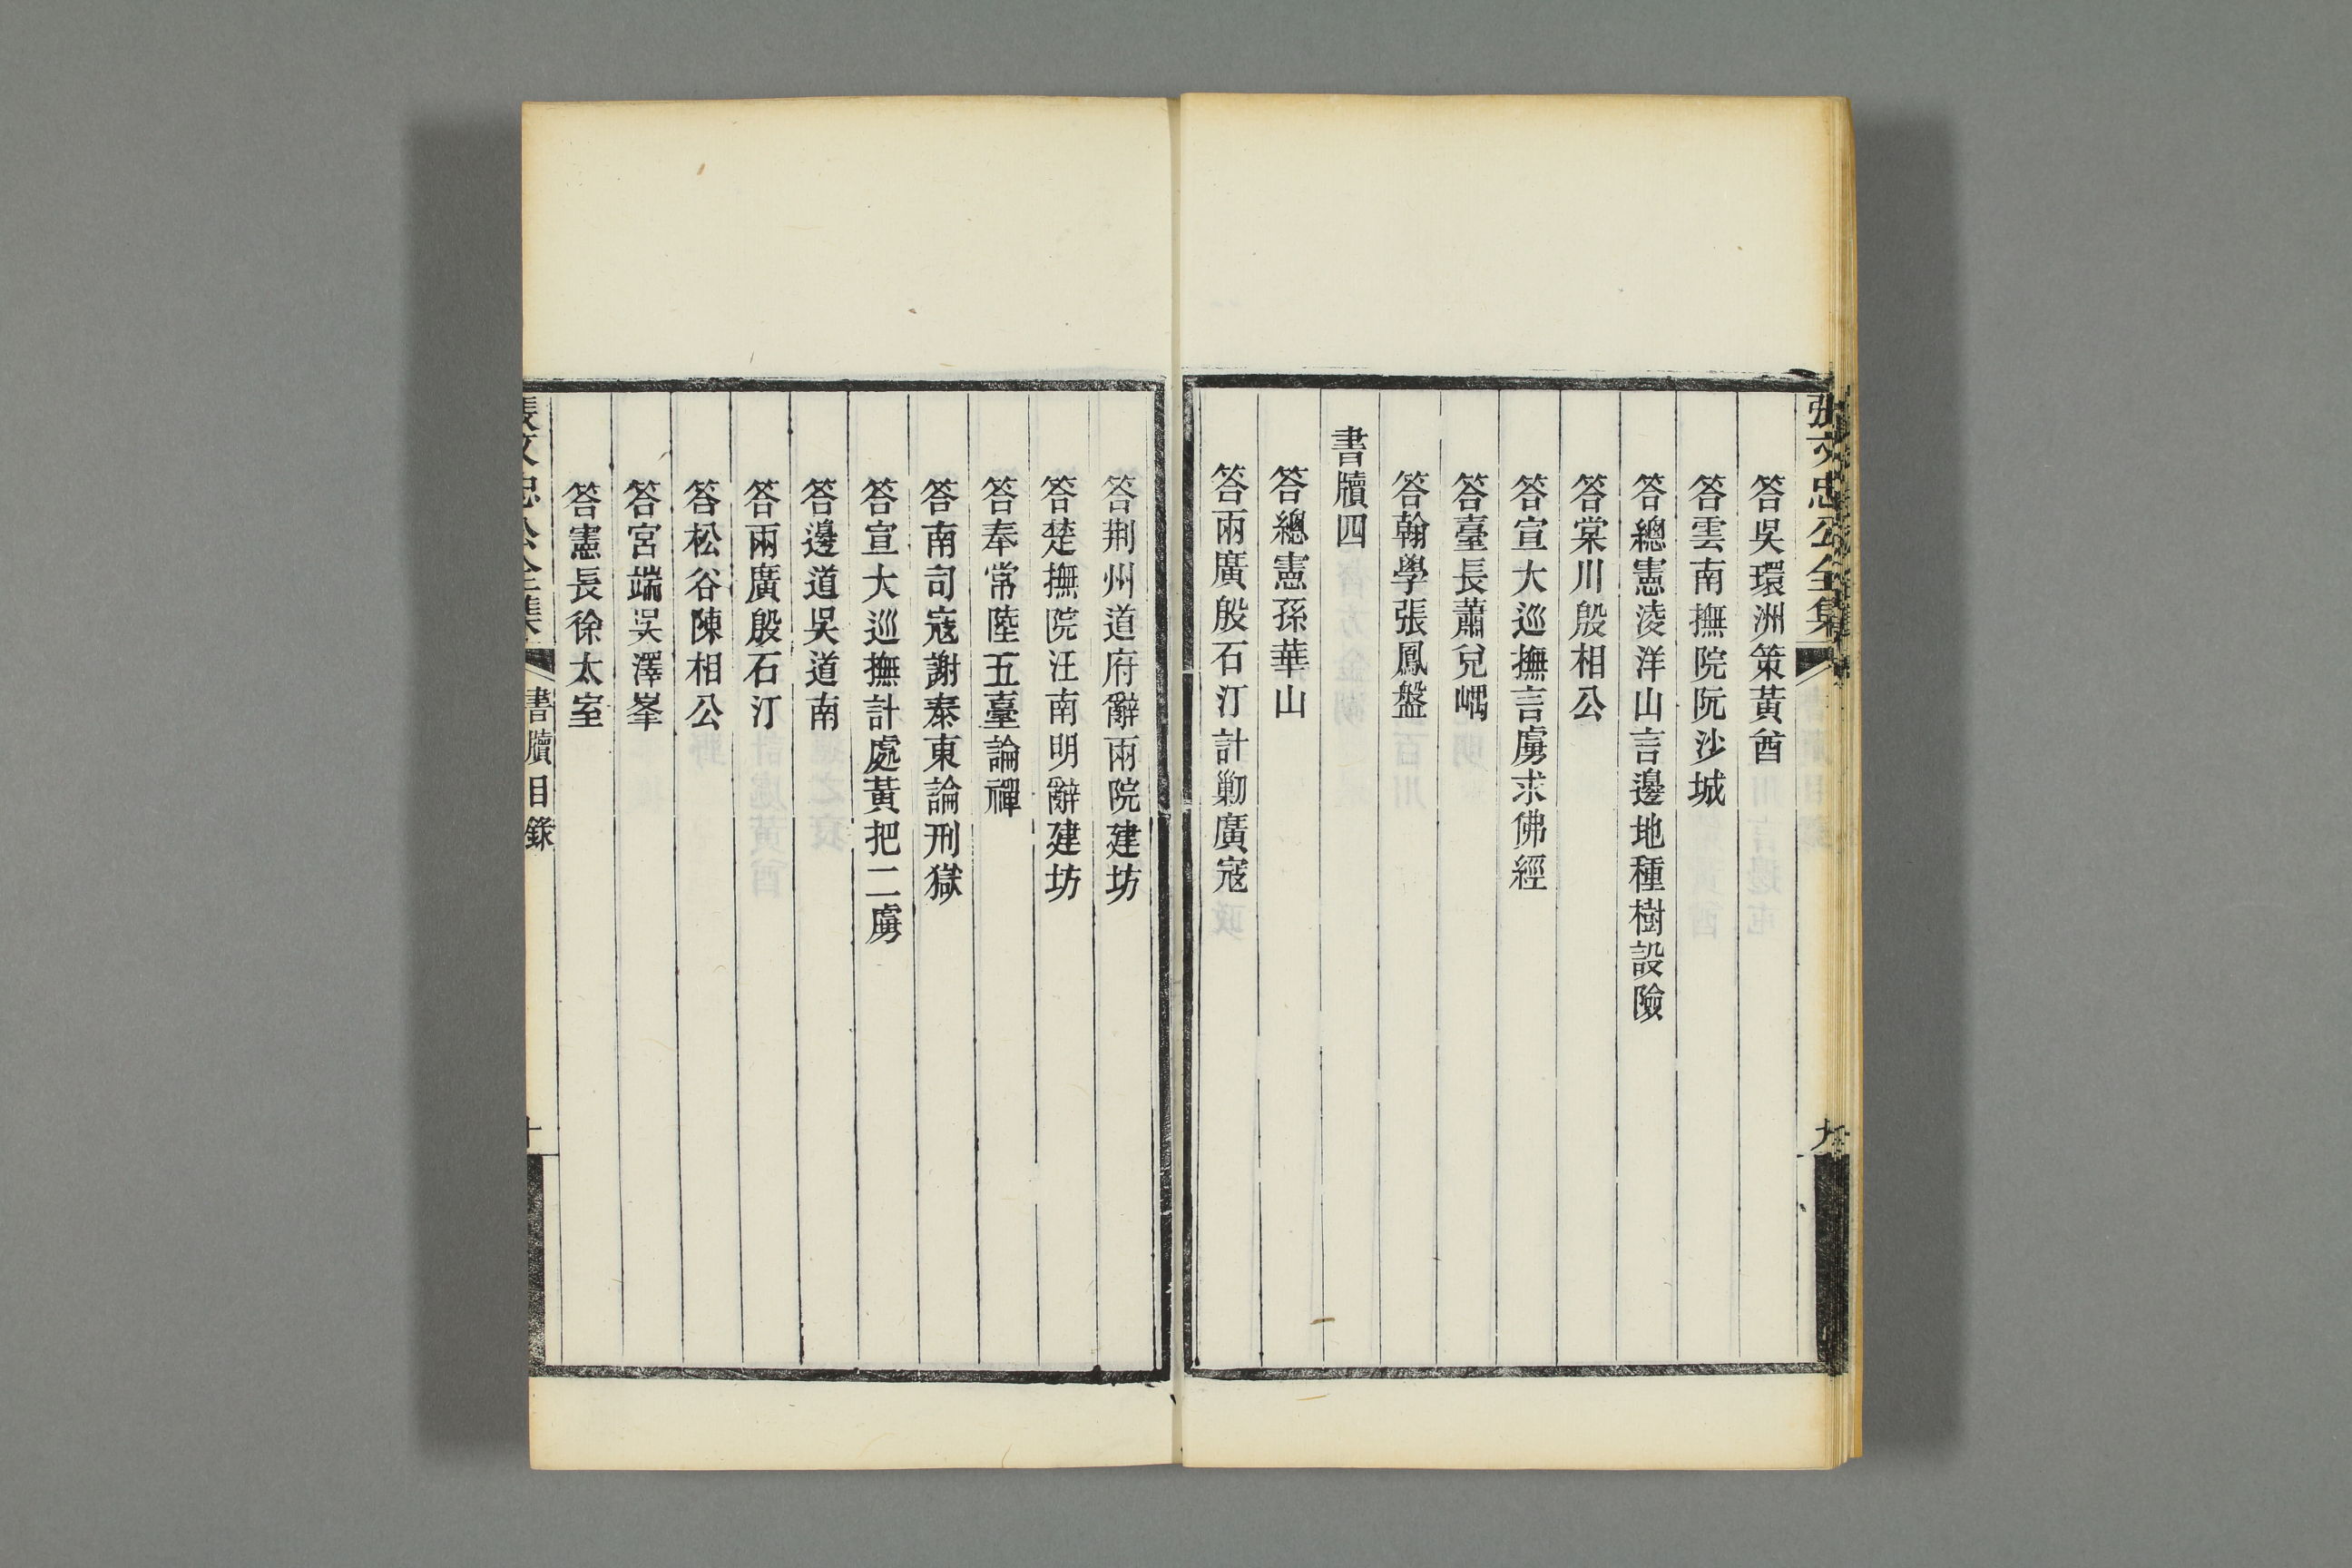 張文忠公全集
九
答吳環洲策黃酋
答雲南撫院阮沙城
答總憲淩洋山言邊地種樹設險
答棠川殷相公
答宣大巡撫言虜求佛經
答臺長蕭兌嵎
答翰學張鳳盤
書牘四
答總憲孫華山
答兩廣殷石汀計勦廣寇
答荆州道府辭兩院建坊
答楚撫院汪南明辭建坊
答奉常陸五臺論禪
答南司寇謝泰東論刑獄
答宣大巡撫計處黃把二虜
答邊道吳道南
答兩廣殷石汀
答松谷陳相公
答宮端吳澤峯
答憲長徐太室
張文忠公全集
書牘目錄
十